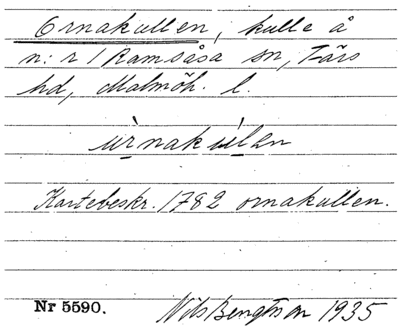 Ornakullen, kulle å
n:r 1 Ramsåsa sn, Färs
hd, Malmöh. l.
ùrnakùlan
Kartebeskr. 1782 ornakullen.
Nr 5590. Nils Bengtson 1935